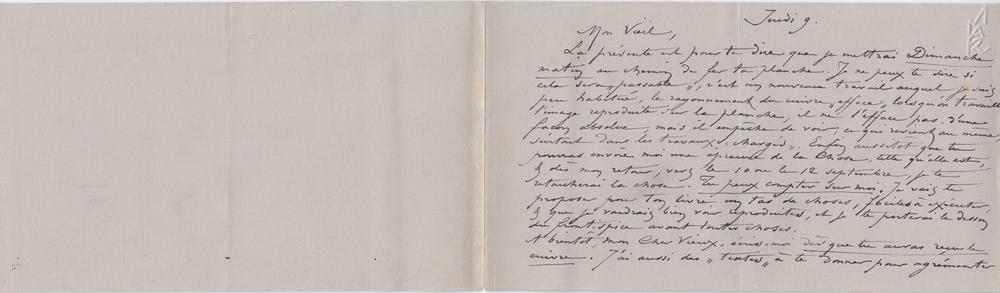 Jeudi 9.
Mon Vieil,
La présente est pour te dire que je mettrai Dimanche
matin au chemin de fer ta planche. Je ne peux te dire si
cela sera „passable", c'est un nouveau travail auquel je suis
peu habitué, le rayonnement du cuivre „efface, lorsqu'on travaille
l'image reproduite sur la planche, il ne l'efface pas d'une
façon absolue, mais il empêche de voir, ce qui revient au même,
surtout dans les travaux „chargés". Enfin aussitot que tu
pourras envoie moi une épreuve de la Chose, telle qu'elle est,
& dès mon retour, vers le 10 ou le 12 septembre, je te
retoucherai la chose. Tu peux compter sur moi. Je vais te
proposer pour ton livre un tas de choses, faciles à exécuter
& que je voudrais bien voir reproduites, et je te porterai le dessin
du frontispice avant toutes choses.
A bientôt, mon Cher Vieux, écris-moi dès que tu auras reçu le
cuivre. J'ai aussi des „textes" à te donner pour agrémenter